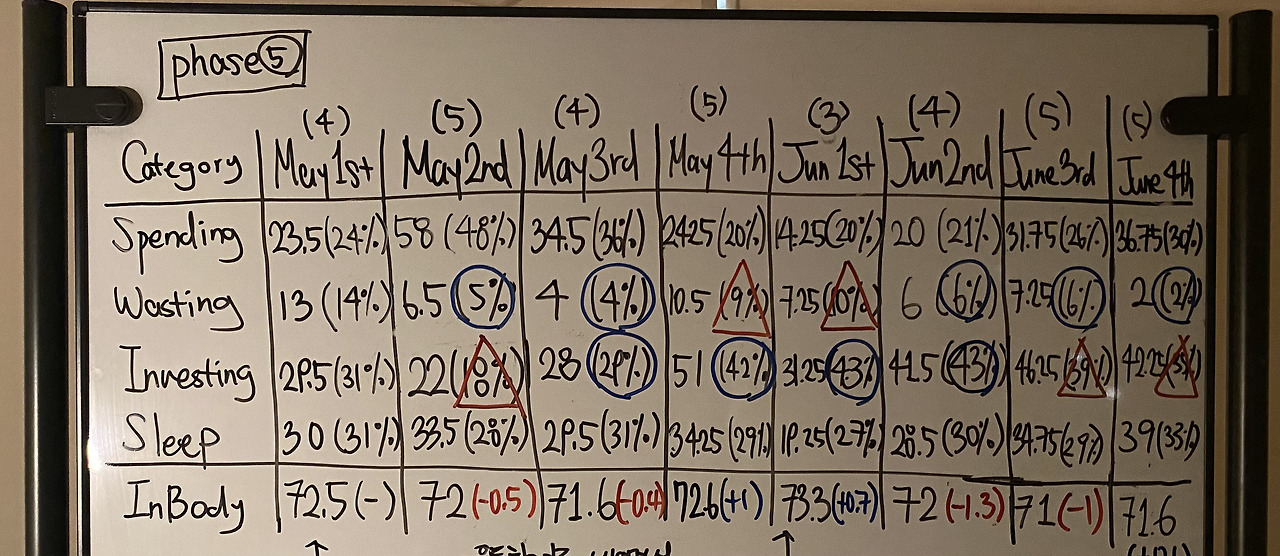 phase 5
(4) (5) (4) (5) (3) (4) (5) (5)
Category May 1st May 2nd May 3rd May 4th Jun 1st Jun 2nd June 3rd June 4th
Spending 23.5 (24%) 58 (48%) 34.5 (36%) 24.25 (20%) 14.25 (20%) 20 (21%) 31.75 (26%) 36.75 (30%)
Wasting 13 (14%) 6.5 (5%) 4 (4%) 10.5 (9%) 7.25 (10%) 6 (6%) 7.25 (6%) 2 (2%)
Investing 29.5 (31%) 22 (18%) 28 (29%) 51 (42%) 31.25 (43%) 41.5 (43%) 46.25 (39%) 42.25
Sleep 30 (31%) 33.5 (28%) 29.5 (31%) 34.25 (29%) 19.25 (27%) 28.5 (30%) 34.75 (29%) 39 (33%)
InBody 72.5 (-) 72 (-0.5) 71.6 (-0.4) 72.6 (+1) 73.3 (+0.7) 72 (-1.3) 71 (-1) 71.6